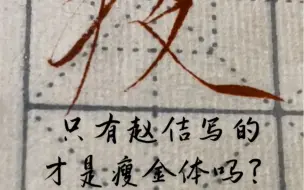 只有赵佶写的
才是瘦金体吗?